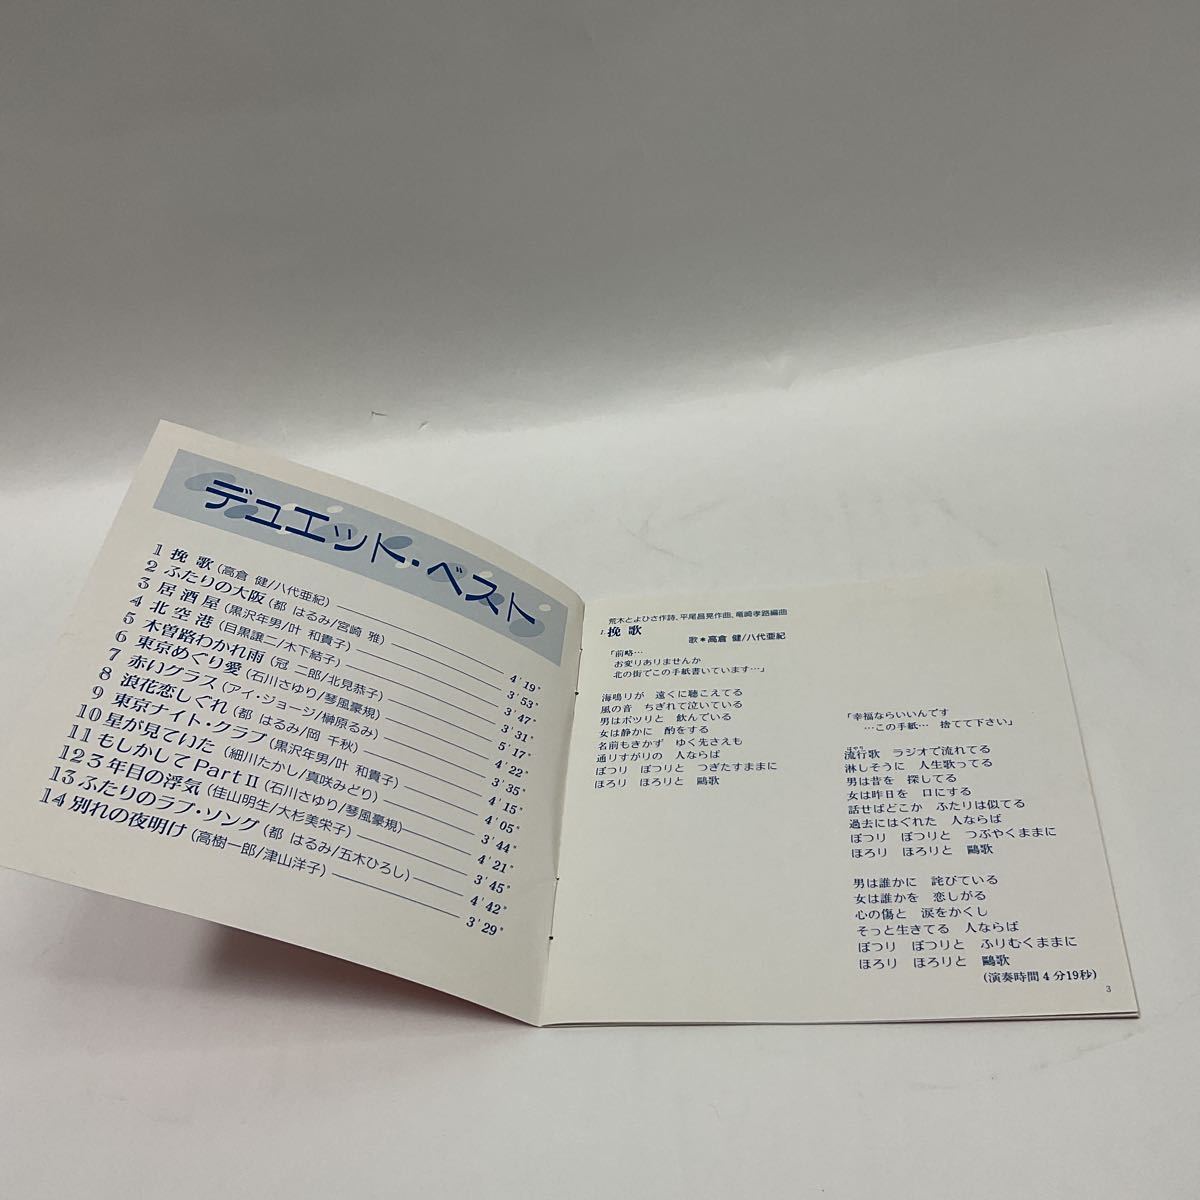 デュエット・ベスト
1 挽歌(高倉 健/八代亜紀) 4'19"
2 ふたりの大阪(都 はるみ/宮崎 雅) 3'53"
3 居酒屋(黒沢年男/叶 和貴子) 3'47"
4 北空港(目黒譲二/木下結子) 3'31"
5 木曽路わかれ雨(冠 二郎/北見恭子) 5'17"
6 東京めぐり愛(石川さゆり/琴風豪規) 4'22"
7 赤いグラス(アイ・ジョージ/榊原るみ) 3'35"
8 浪花恋しぐれ(都 はるみ/岡 千秋) 4'15"
9 東京ナイト・クラブ(黒沢年男/叶 和貴子) 4'05"
10 星が見ていた(細川たかし/真咲みどり) 3'44"
11 もしかしてPartⅡ(石川さゆり/琴風豪規) 4'21"
12 3年目の浮気(佳山明生/大杉美栄子) 3'45"
13 ふたりのラブ・ソング(都 はるみ/五木ひろし) 4'42"
14 別れの夜明け(高樹一郎/津山洋子) 3'29"
荒木とよひさ作詩、平尾昌晃作曲、竜崎孝路編曲
1. 挽歌
歌*高倉 健/八代亜紀
「前略…
お変りありませんか
北の街でこの手紙書いています…」
海鳴りが 遠くに聴こえてる
風の音 ちぎれて泣いている
男はポツリと 飲んでいる
女は静かに 酌をする
名前もきかず ゆく先さえも
通りすがりの 人ならば
ぽつり ぽつりと つぎたすままに
ほろり ほろりと 鷗歌
「幸福ならいいんです
…この手紙… 捨てて下さい」
流行歌 ラジオで流れてる
淋しそうに 人生歌ってる
男は昔を 探してる
女は昨日を 口にする
話せばどこか ふたりは似てる
過去にはぐれた 人ならば
ぽつり ぽつりと つぶやくままに
ほろり ほろりと 鷗歌
男は誰かに 詫びている
女は誰かを 恋しがる
心の傷と 涙をかくし
そっと生きてる 人ならば
ぽつり ぽつりと ふりむくままに
ほろり ほろりと 鷗歌
(演奏時間4分19秒)
3